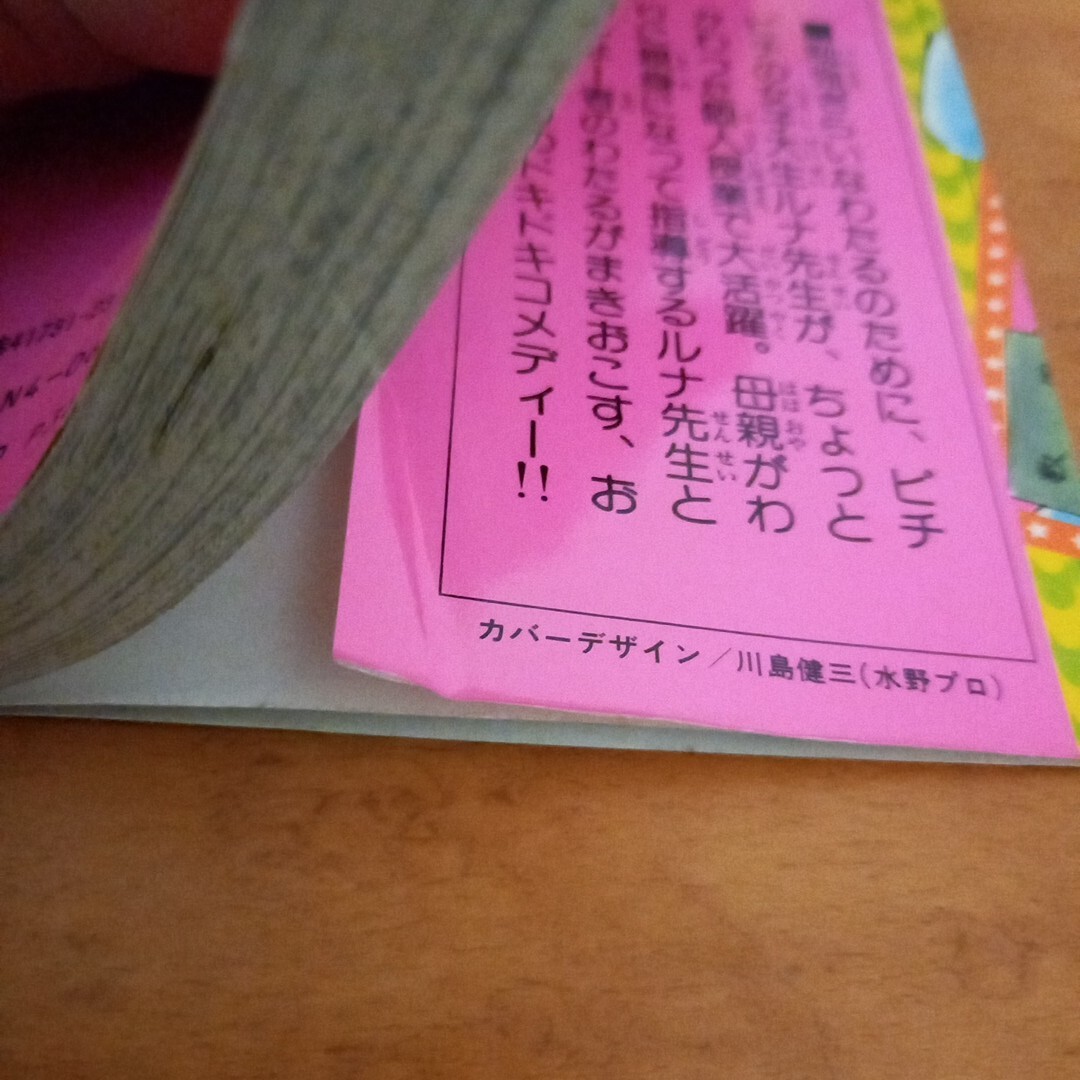 勉強ぎらいなわたるのために、ピチ
ピチの女子大生ルナ先生が、ちょっと
かわった個人授業で大活躍。母親がわ
りに親身になって指導するルナ先生と
者のわたるがまきおこす、お
ドキドキコメディー!!
カバーデザイン/川島健三(水野プロ)